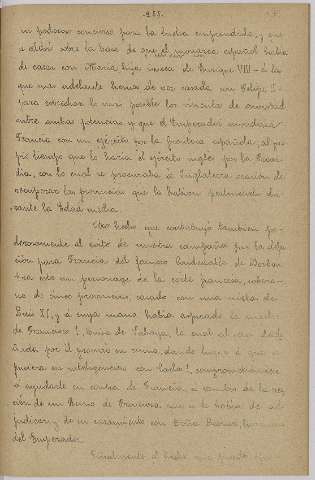 -255-
un poderoso concurso para la lucha emprendida, y que
se obtuvo sobre la base de que el monarca español había
de casar con María hija única de Enrique VIII - á la
que mas adelante hemos de ver casada con Felipe I-
para estrechar lo mas posible los vínculos de amistad
entre ambas potencias y que el Emperador invadiera
Francia con un ejército por la frontera española, al pro-
pio tiempo que lo haría el ejército inglés por la Picar-
día, con lo cual se procuraba á Inglaterra ocasión de
recuperar las provincias que le habían pertenecido du-
rante la Edad media.
Otro hecho que contribuyó tambien po-
derosamente al éxito de nuestra campaña fue la
para Francia del famoso Condestable de Borbon
Era este un personaje de la corte francesa,
de cinco provincias, casado con una nieta de
Luis XI, y á cuya mano había aspirado la madre
de Francisco I, Luisa de Saboya, la cual al ser
por él promovió su ruina, dando lugar á que se
pusiera en inteligencia con Carlos I, comprometiendose
á ayudarle en contra de Francia, á cambio de la
de un Reino de Provenza, que se le había de ad-
judicar, y de su casamiento con Doña Leonor, hermana
del Emperador.
Finalmente el hecho que